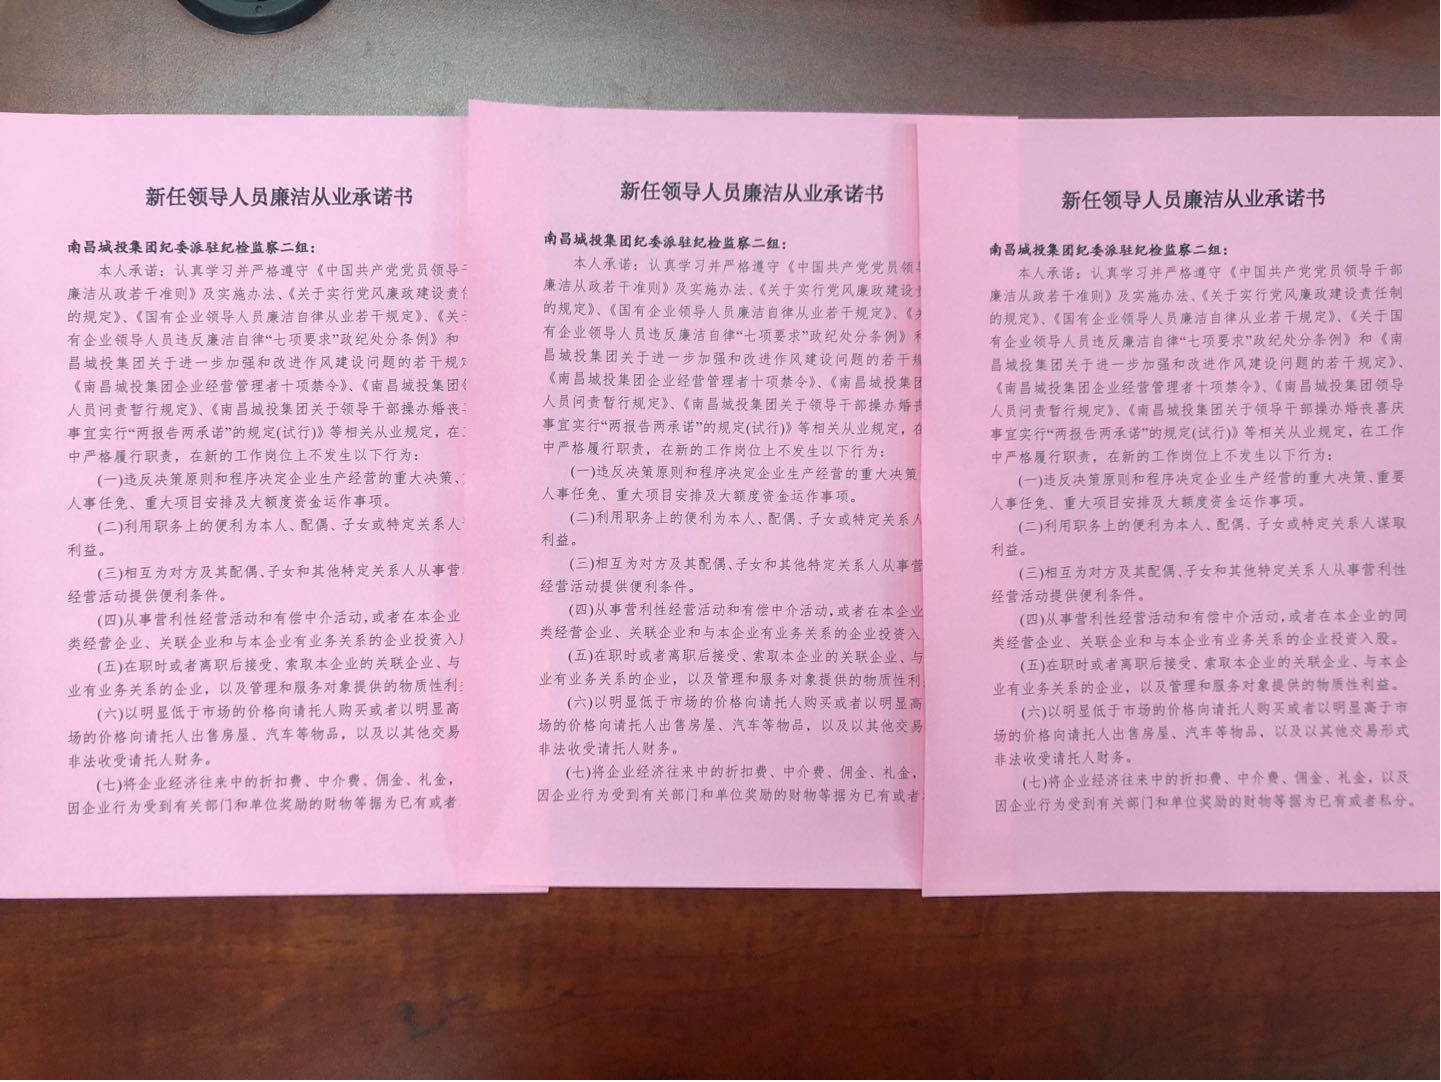 新任领导人员廉洁从业承诺书
南昌城投集团纪委派驻纪检监察二组：
本人承诺：认真学习并严格遵守《中国共产党党员领导
廉洁从政若干准则》及实施办法、《关于实行党风廉政建设责
的规定》、《国有企业领导人员廉洁自律从业若干规定》、《关
有企业领导人员违反廉洁自律“七项要求”政纪处分条例》和
昌城投集团关于进一步加强和改进作风建设问题的若干规
《南昌城投集团企业经营管理者十项禁令》、《南昌城投集团
人员问责暂行规定》、《南昌城投集团关于领导干部操办婚丧
事宜实行“两报告两承诺”的规定(试行)》等相关从业规定，在
中严格履行职责，在新的工作岗位上不发生以下行为：
(一)违反决策原则和程序决定企业生产经营的重大决策、
人事任免、重大项目安排及大额度资金运作事项。
(二)利用职务上的便利为本人、配偶、子女或特定关系人
利益。
(三)相互为对方及其配偶、子女和其他特定关系人从事营
经营活动提供便利条件。
(四)从事营利性经营活动和有偿中介活动，或者在本企业
类经营企业、关联企业和与本企业有业务关系的企业投资入
(五)在职时或者离职后接受、索取本企业的关联企业、与
业有业务关系的企业，以及管理和服务对象提供的物质性利
(六)以明显低于市场的价格向请托人购买或者以明显高
场的价格向请托人出售房屋、汽车等物品，以及以其他交易
非法收受请托人财务。
(七)将企业经济往来中的折扣费、中介费、佣金、礼金，
因企业行为受到有关部门和单位奖励的财物等据为已有或者
新任领导人员廉洁从业承诺书
南昌城投集团纪委派驻纪检监察二组：
本人承诺：认真学习并严格遵守《中国共产党党员领导
廉洁从政若干准则》及实施办法、《关于实行党风廉政建设
的规定》、《国有企业领导人员廉洁自律从业若干规定》、《关
有企业领导人员违反廉洁自律“七项要求”政纪处分条例》和
昌城投集团关于进一步加强和改进作风建设问题的若干规
《南昌城投集团企业经营管理者十项禁令》、《南昌城投集团
人员问责暂行规定》、《南昌城投集团关于领导干部操办婚丧
事宜实行“两报告两承诺”的规定(试行)》等相关从业规定，在
中严格履行职责，在新的工作岗位上不发生以下行为：
(一)违反决策原则和程序决定企业生产经营的重大决策、
人事任免、重大项目安排及大额度资金运作事项。
(二)利用职务上的便利为本人、配偶、子女或特定关系人
利益。
(三)相互为对方及其配偶、子女和其他特定关系人从事营
经营活动提供便利条件。
(四)从事营利性经营活动和有偿中介活动，或者在本企业
类经营企业、关联企业和与本企业有业务关系的企业投资入
(五)在职时或者离职后接受、索取本企业的关联企业、与
业有业务关系的企业，以及管理和服务对象提供的物质性利
(六)以明显低于市场的价格向请托人购买或者以明显高
场的价格向请托人出售房屋、汽车等物品，以及以其他交易
非法收受请托人财务。
(七)将企业经济往来中的折扣费、中介费、佣金、礼金，
因企业行为受到有关部门和单位奖励的财物等据为已有或者
新任领导人员廉洁从业承诺书
南昌城投集团纪委派驻纪检监察二组：
本人承诺：认真学习并严格遵守《中国共产党党员领导干部
廉洁从政若干准则》及实施办法、《关于实行党风廉政建设责任制
的规定》、《国有企业领导人员廉洁自律从业若干规定》、《关于国
有企业领导人员违反廉洁自律“七项要求”政纪处分条例》和《南
昌城投集团关于进一步加强和改进作风建设问题的若干规定》、
《南昌城投集团企业经营管理者十项禁令》、《南昌城投集团领导
人员问责暂行规定》、《南昌城投集团关于领导干部操办婚丧喜庆
事宜实行“两报告两承诺”的规定(试行)》等相关从业规定，在工作
中严格履行职责，在新的工作岗位上不发生以下行为：
(一)违反决策原则和程序决定企业生产经营的重大决策、重要
人事任免、重大项目安排及大额度资金运作事项。
(二)利用职务上的便利为本人、配偶、子女或特定关系人谋取
利益。
(三)相互为对方及其配偶、子女和其他特定关系人从事营利性
经营活动提供便利条件。
(四)从事营利性经营活动和有偿中介活动，或者在本企业的同
类经营企业、关联企业和与本企业有业务关系的企业投资入股。
(五)在职时或者离职后接受、索取本企业的关联企业、与本企
业有业务关系的企业，以及管理和服务对象提供的物质性利益。
(六)以明显低于市场的价格向请托人购买或者以明显高于市
场的价格向请托人出售房屋、汽车等物品，以及以其他交易形式
非法收受请托人财务。
(七)将企业经济往来中的折扣费、中介费、佣金、礼金，以及
因企业行为受到有关部门和单位奖励的财物等据为已有或者私分。